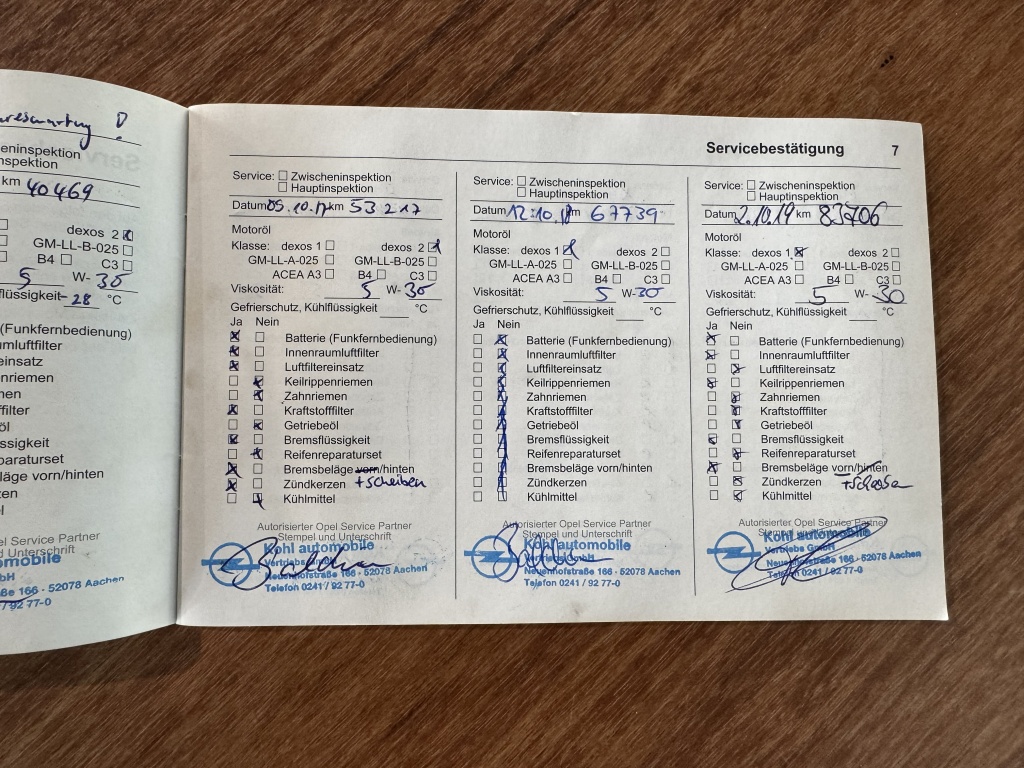 Jahreswartung
cheninspektion
nspektion
km 40469
dexos 2
GM-LL-B-025
B4 C3
5 W- 30
flüssigkeit -28 °C
(Funkfernbedienung)
umluftfilter
einsatz
nriemen
men
ffilter
öl
ssigkeit
eparaturset
eläge vorn/hinten
zen
el
Opel Service Partner
und Unterschrift
omobile
bH
ße 166 · 52078 Aachen
/ 92 77-0
Servicebestätigung 7
Service: Zwischeninspektion
Hauptinspektion
Datum 05.10.17 km 53217
Motoröl
Klasse: dexos 1 dexos 2
GM-LL-A-025 GM-LL-B-025
ACEA A3 B4 C3
Viskosität: 5 W- 30
Gefrierschutz, Kühlflüssigkeit °C
Ja Nein
Batterie (Funkfernbedienung)
Innenraumluftfilter
Luftfiltereinsatz
Keilrippenriemen
Zahnriemen
Kraftstofffilter
Getriebeöl
Bremsflüssigkeit
Reifenreparaturset
Bremsbeläge vorn/hinten
Zündkerzen + Scheiben
Kühlmittel
Autorisierter Opel Service Partner
Stempel und Unterschrift
Kohl automobile
Vertriebs GmbH
Neuenhofstraße 166 · 52078 Aachen
Telefon 0241 / 92 77-0
Service: Zwischeninspektion
Hauptinspektion
Datum 12.10.18 km 67739
Motoröl
Klasse: dexos 1 dexos 2
GM-LL-A-025 GM-LL-B-025
ACEA A3 B4 C3
Viskosität: 5 W- 30
Gefrierschutz, Kühlflüssigkeit °C
Ja Nein
Batterie (Funkfernbedienung)
Innenraumluftfilter
Luftfiltereinsatz
Keilrippenriemen
Zahnriemen
Kraftstofffilter
Getriebeöl
Bremsflüssigkeit
Reifenreparaturset
Bremsbeläge vorn/hinten
Zündkerzen
Kühlmittel
Autorisierter Opel Service Partner
Stempel und Unterschrift
Kohl automobile
Vertriebs GmbH
Neuenhofstraße 166 · 52078 Aachen
Telefon 0241 / 92 77-0
Service: Zwischeninspektion
Hauptinspektion
Datum 2.10.19 km 83706
Motoröl
Klasse: dexos 1 dexos 2
GM-LL-A-025 GM-LL-B-025
ACEA A3 B4 C3
Viskosität: 5 W- 30
Gefrierschutz, Kühlflüssigkeit °C
Ja Nein
Batterie (Funkfernbedienung)
Innenraumluftfilter
Luftfiltereinsatz
Keilrippenriemen
Zahnriemen
Kraftstofffilter
Getriebeöl
Bremsflüssigkeit
Reifenreparaturset
Bremsbeläge vorn/hinten
Zündkerzen + Scheiben
Kühlmittel
Autorisierter Opel Service Partner
Stempel und Unterschrift
Kohl automobile
Vertriebs GmbH
Neuenhofstraße 166 · 52078 Aachen
Telefon 0241 / 92 77-0